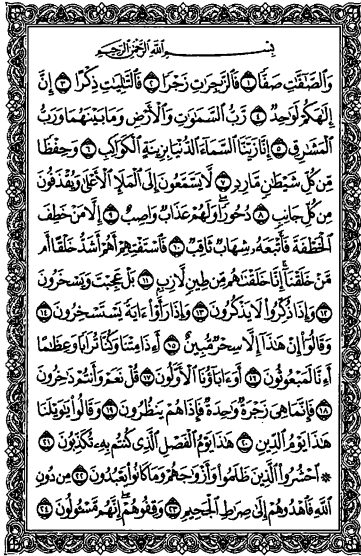 بِسْمِ اللَّهِ الرَّحْمَٰنِ الرَّحِيمِ
وَالصَّٰٓفَّٰتِ صَفًّا ١ فَالزَّٰجِرَٰتِ زَجْرًا ٢ فَالتَّٰلِيَٰتِ ذِكْرًا ٣ إِنَّ
إِلَٰهَكُمْ لَوَٰحِدٌ ٤ رَّبُّ السَّمَٰوَٰتِ وَالْأَرْضِ وَمَا بَيْنَهُمَا وَرَبُّ
الْمَشَٰرِقِ ٥ إِنَّا زَيَّنَّا السَّمَآءَ الدُّنْيَا بِزِينَةٍ الْكَوَاكِبِ ٦ وَحِفْظًا
مِّن كُلِّ شَيْطَٰنٍ مَّارِدٍ ٧ لَّا يَسَّمَّعُونَ إِلَى الْمَلَإِ الْأَعْلَىٰ وَيُقْذَفُونَ
مِن كُلِّ جَانِبٍ ٨ دُحُورًا ۖ وَلَهُمْ عَذَابٌ وَاصِبٌ ٩ إِلَّا مَنْ خَطِفَ
الْخَطْفَةَ فَأَتْبَعَهُ شِهَابٌ ثَاقِبٌ ١٠ فَاسْتَفْتِهِمْ أَهُمْ أَشَدُّ خَلْقًا أَم
مَّنْ خَلَقْنَآ ۚ إِنَّا خَلَقْنَٰهُم مِّن طِينٍ لَّازِبٍ ١١ بَلْ عَجِبْتَ وَيَسْخَرُونَ
١٢ وَإِذَا ذُكِّرُوا لَا يَذْكُرُونَ ١٣ وَإِذَا رَأَوْا ءَايَةً يَسْتَسْخِرُونَ ١٤
وَقَالُوٓا إِنْ هَٰذَآ إِلَّا سِحْرٌ مُّبِينٌ ١٥ أَءِذَا مِتْنَا وَكُنَّا تُرَابًا وَعِظَٰمًا
أَءِنَّا لَمَبْعُوثُونَ ١٦ أَوَءَابَآؤُنَا الْأَوَّلُونَ ١٧ قُلْ نَعَمْ وَأَنتُمْ دَٰخِرُونَ
١٨ فَإِنَّمَا هِىَ زَجْرَةٌ وَٰحِدَةٌ فَإِذَا هُمْ يَنظُرُونَ ١٩ وَقَالُوا يَٰوَيْلَنَا
هَٰذَا يَوْمُ الدِّينِ ٢٠ هَٰذَا يَوْمُ الْفَصْلِ الَّذِى كُنتُم بِهِۦ تُكَذِّبُونَ ٢١
۞ احْشُرُوا الَّذِينَ ظَلَمُوا وَأَزْوَٰجَهُمْ وَمَا كَانُوا يَعْبُدُونَ ٢٢ مِن دُونِ
اللَّهِ فَاهْدُوهُمْ إِلَىٰ صِرَٰطِ الْجَحِيمِ ٢٣ وَقِفُوهُمْ ۖ إِنَّهُم مَّسْـُٔولُونَ ٢٤